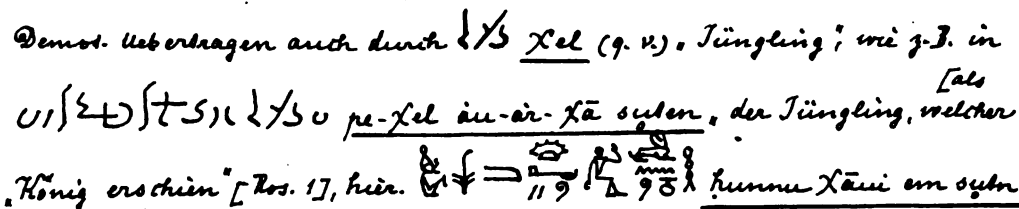 Demot. Uebertragen auch durch χel (q. v.) „Jüngling“, wie z. B. in
pe-χel àu-àr-χā suten „der Jüngling, welcher [als
„König erschien“ [Ros. 1], hier. ḥunnu χāui em sutn